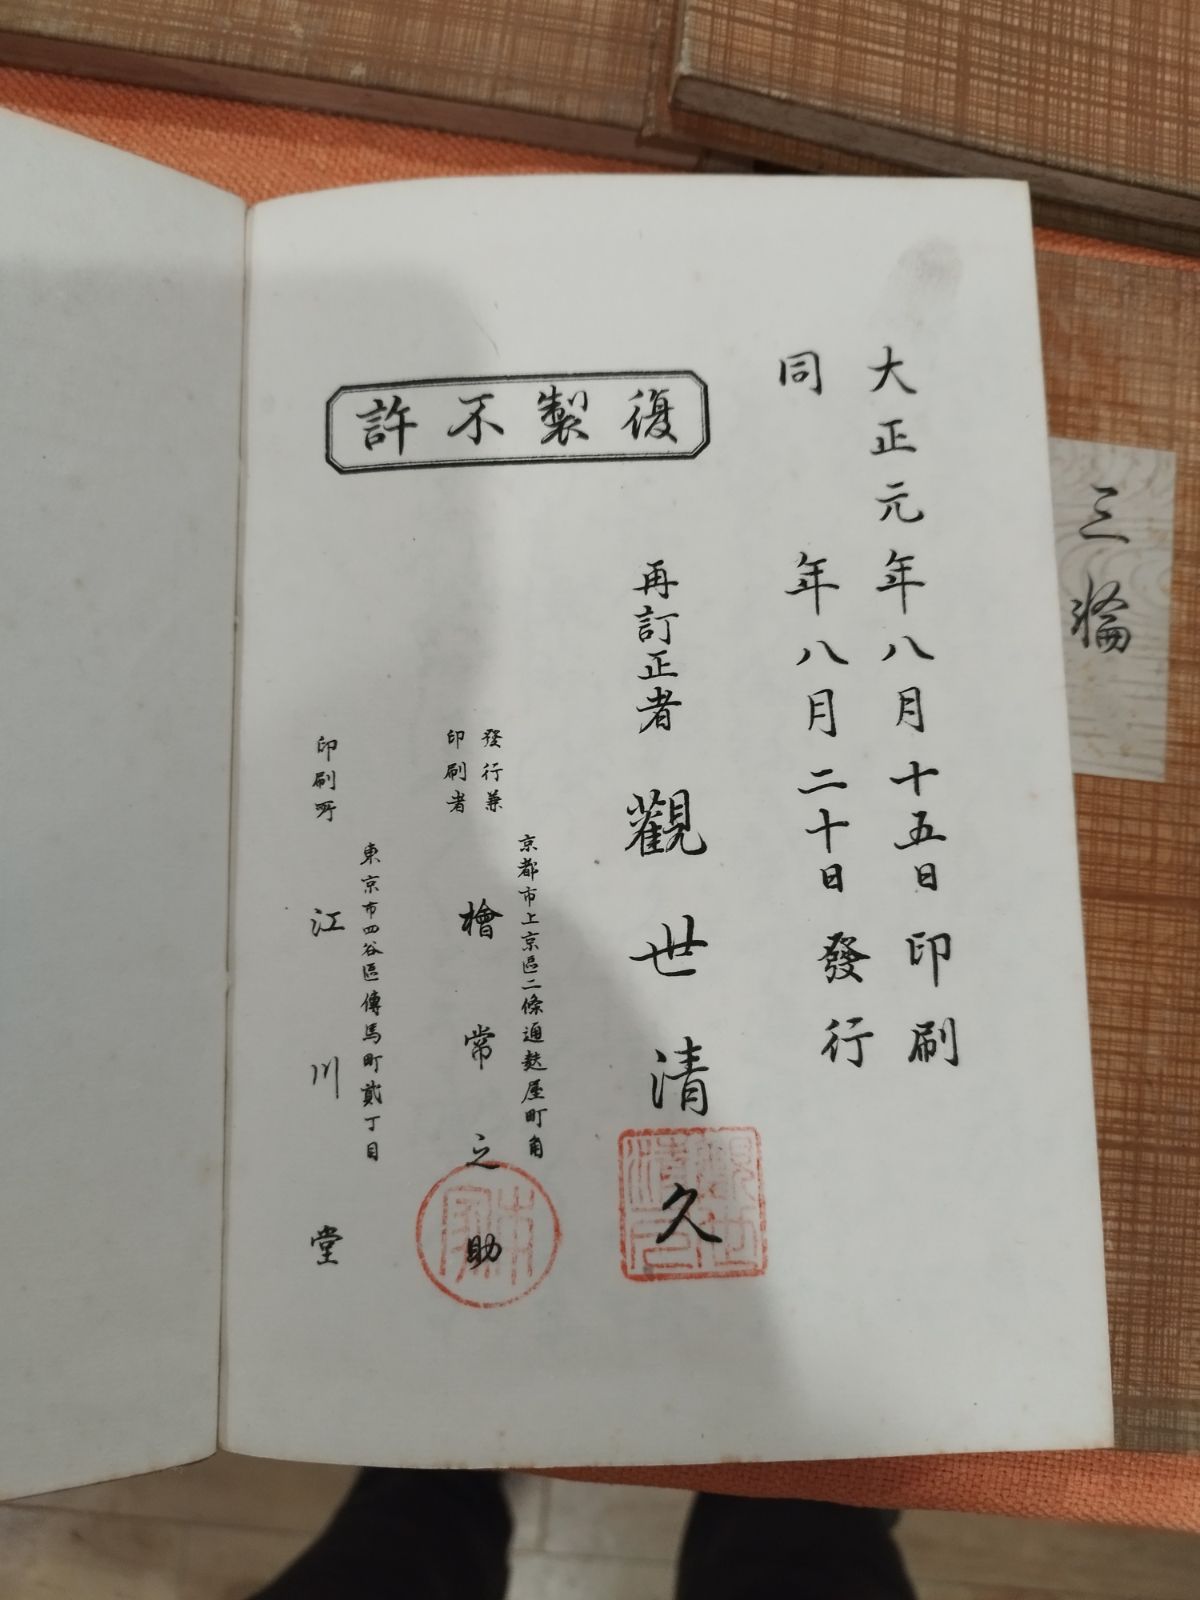 大正元年八月十五日印刷
同年八月二十日發行
復製不許
再訂正者 觀世清久
京都市上京區二條通麩屋町角
發行兼
印刷者
檜常之助
東京市四谷區傳馬町貳丁目
印刷所 江川堂
三輪